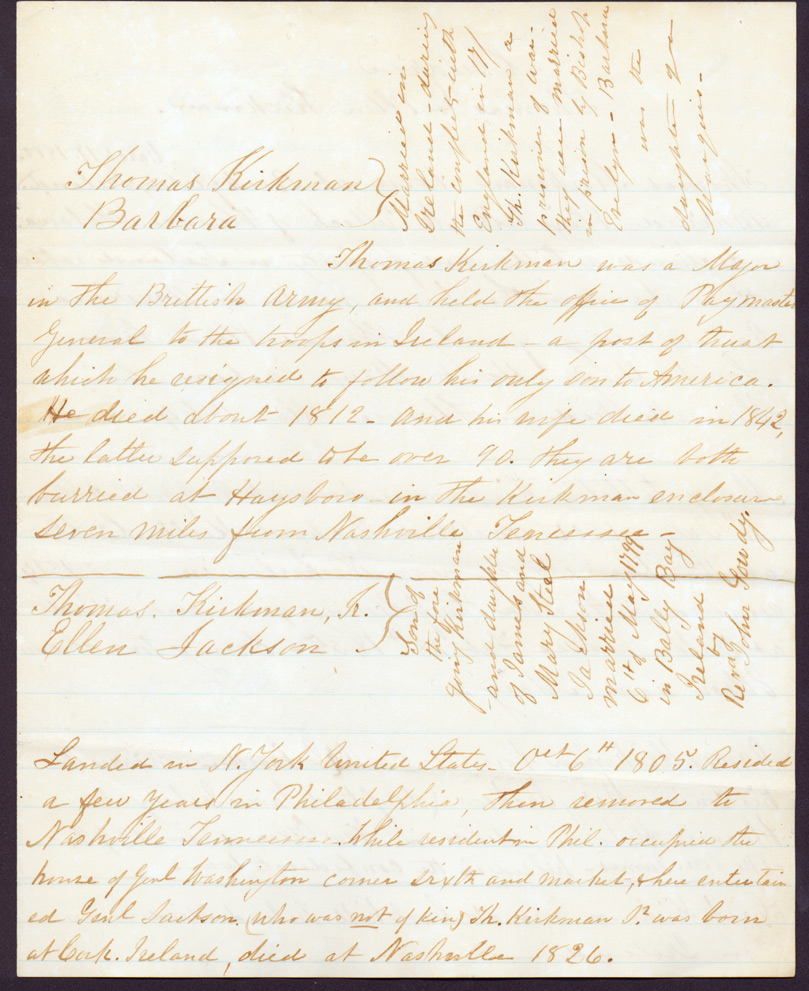 Thomas Kirkman
Barbara
Married in
Ireland - during
the conflict with
England in 17
Th. Kirkman a
prisoner of war -
they were married
in prison by Bishop
Evelyn - Barbara
was the
daughter of a
Marquis -
Thomas Kirkman was a Major
in the Brittish Army, and held the office of Paymaster
General to the troops in Ireland - a post of trust
which he resigned to follow his only son to America.
He died about 1812 - and his wife died in 1842,
the latter supposed to be over 90. They are both
burried at Haysboro - in the Kirkman enclosure
seven miles from Nashville Tennessee -
Thomas. Kirkman, Jr.
Ellen Jackson
Son of
the fore
going Kirkman
and daughter
of James and
Mary Steel
Jackson
married
6th of May
in Bally Bay
Ireland
by
Revd John
Landed in N. York United States - Oct 6th 1805. Resided
a few years in Philadelphia, then removed to
Nashville Tennessee. While resident in Phil. occupied the
house of Genl Washington corner sixth and market, & here entertain
ed Genl Jackson. (who was not of kin) Th. Kirkman Jr. was born
at Cork. Ireland, died at Nashville 1826.